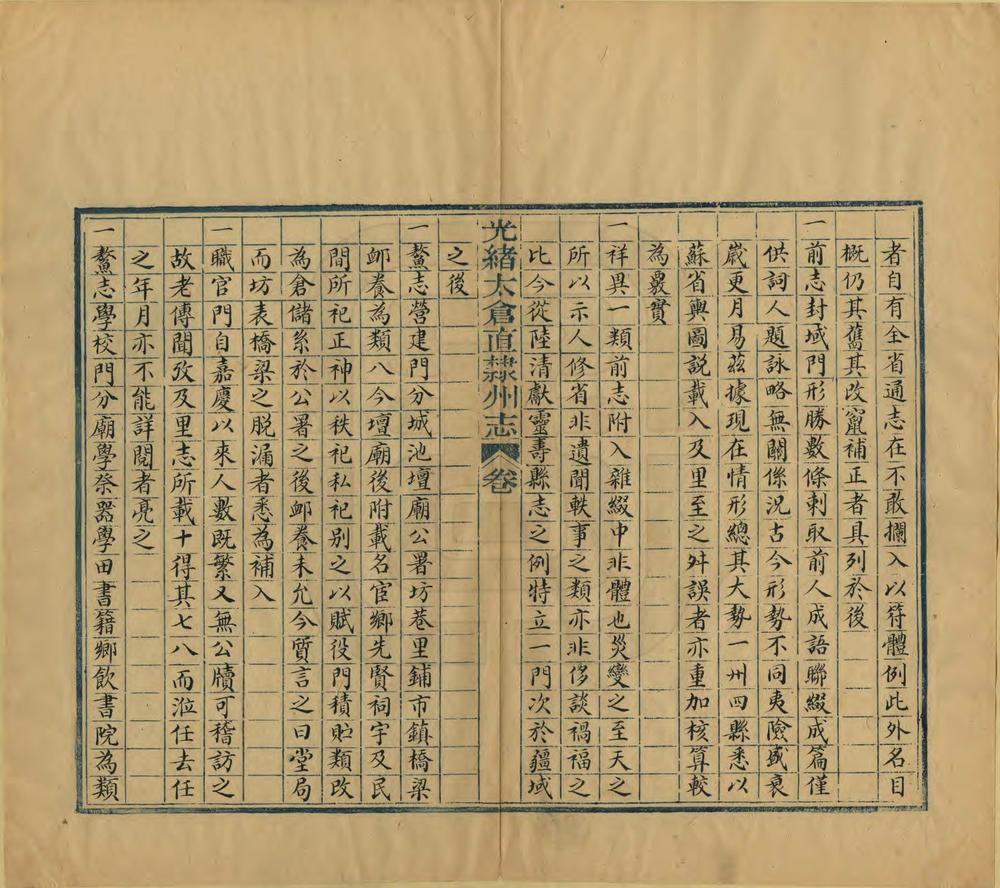 者自有全省通志在不敢攔入以符體例此外名目
概仍其舊其改竄補正者具列於後
一前志封域門形勝數條刺取前人成語聯綴成篇僅
供詞人題詠略無關係況古今形勢不同夷險盛衰
歲更月易茲據現在情形總其大勢一州四縣悉以
蘇省輿圖説載入及里至之舛誤者亦重加核算較
為覈實
一祥異一類前志附入雜綴中非體也災變之至天之
所以示人修省非遺聞軼事之類亦非侈談禍福之
比今從陸清獻靈壽縣志之例特立一門次於疆域
光緒太倉直隸州志 卷
之後
一鰲志營建門分城池壇廟公署坊巷里鋪市鎮橋梁
卹養為類八今壇廟後附載名宦鄉先賢祠宇及民
間所祀正神以秩祀私祀别之以賦役門積貯類改
為倉儲系於公署之後卹養未允今質言之曰堂局
而坊表橋梁之脱漏者悉為補入
一職官門自嘉慶以來人數既繁又無公牘可稽訪之
故老傳聞攷及里志所載十得其七八而涖任去任
之年月亦不能詳閲者亮之
一鰲志學校門分廟學祭器學田書籍鄉飲書院為類